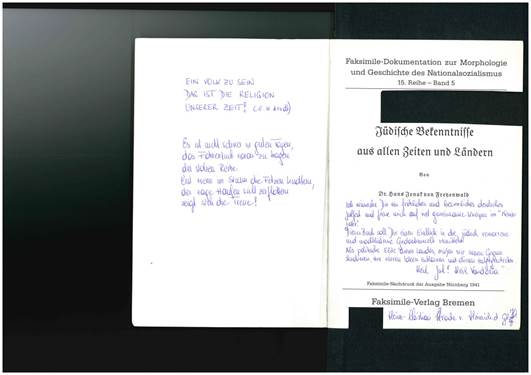 EIN VOLK ZU SEIN
DAS IST DIE RELIGION
UNSERER ZEIT!
Es ist nicht schwer in guten Tagen,
das Fahnentuch voran zu tragen
der stolzen Reihe.
Erst wenn im Sturm die Fahnen knattern,
der zage Haufen will zerflattern
zeigt sich die Treue!
Faksimile-Dokumentation zur Morphologie
und Geschichte des Nationalsozialismus
15. Reihe – Band 5
Jüdische Bekenntnisse
aus allen Zeiten und Ländern
Von
Dr. Hans Jonak von Freyenwald
Ich wünsche Dir ein fröhliches und besinnliches deutsches
Julfest und freue mich auf viel gemeinsame im "Neuen
Jahr".
Dieses Buch soll Dir einen Einblick in die jüdisch
und Gedankenwelt
Als politische Elite Lander, müssen wir unsere Gegner
studieren, um unsere Ideen und
Heil Jul! Heil Vandalia"
Faksimile-Nachdruck der Ausgabe Nürnberg 1941
Faksimile-Verlag Bremen
Heinz Christian Strache v.